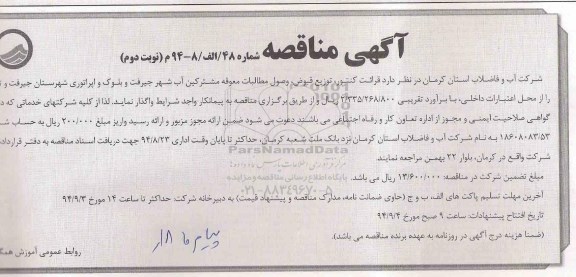 آگهی مناقصه شماره ۴۸/الف/۸-۹۴ م (نوبت دوم)
شرکت آب و فاضلاب استان کرمان در نظر دارد قرائت کنتور، توزیع قبوض، وصول مطالبات معوقه مشترکین آب شهر جیرفت و بلوک و اپراتوری شهرستان جیرفت و
را از محل اعتبارات داخلی، با برآورد تقریبی ۳/۳۳۵/۲۶۸/۸۰۰ ریال و از طریق برگزاری مناقصه به پیمانکار واجد شرایط واگذار نمایند. لذا از کلیه شرکتهای خدماتی که دا
گواهی صلاحیت ایمنی و مجوز از اداره تعاون کار و رفاه اجتماعی می باشند دعوت می شود ضمن ارائه مجوز مزبور و ارائه رسید واریز مبلغ ۲۰۰/۰۰۰ ریال به حساب
۱۸۶۰۸۰۸۳/۵۳ به نام شرکت آب و فاضلاب استان کرمان نزد بانک ملت شعبه کرمان، حداکثر تا پایان وقت اداری ۹۴/۸/۲۳ جهت دریافت اسناد مناقصه به دفتر قرارداد
شرکت واقع در کرمان، بلوار ۲۲ بهمن مراجعه نمایند
مبلغ تضمین شرکت در مناقصه: ۱۳/۶۰۰/۰۰۰ ریال می باشد.
آخرین مهلت تسلیم پاکت های الف، ب و ج (حاوی ضمانت نامه، مدارک مناقصه و پیشنهاد قیمت) به دبیرخانه شرکت: حداکثر تا ساعت ۱۴ مورخ ۹۴/۹/۳
تاریخ افتتاح پیشنهادات: ساعت ۹ صبح مورخ ۹۴/۹/۴
(ضمنا هزینه درج آگهی در روزنامه به عهده برنده مناقصه می باشد).
پیام ما ۸/۱۸
روابط عمومی آموزش همگا
ParsNamadData
پایگاه اطلاع رسانی مناقصه و مزایده
۰۲۱-۸۸۳۴۹۶۷۰-۵